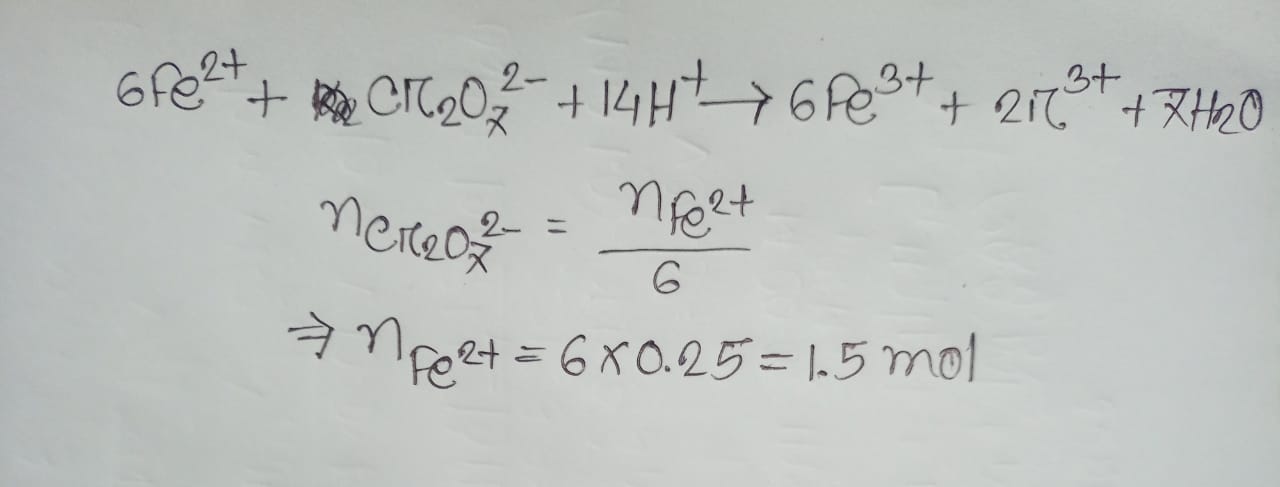 6Fe²⁺ + Cr₂O₇²⁻ + 14H⁺ → 6Fe³⁺ + 2r³⁺ + 7H₂O
nCr₂O₇²⁻ = nFe²⁺ / 6
⇒ nFe²⁺ = 6×0.25 = 1.5 mol